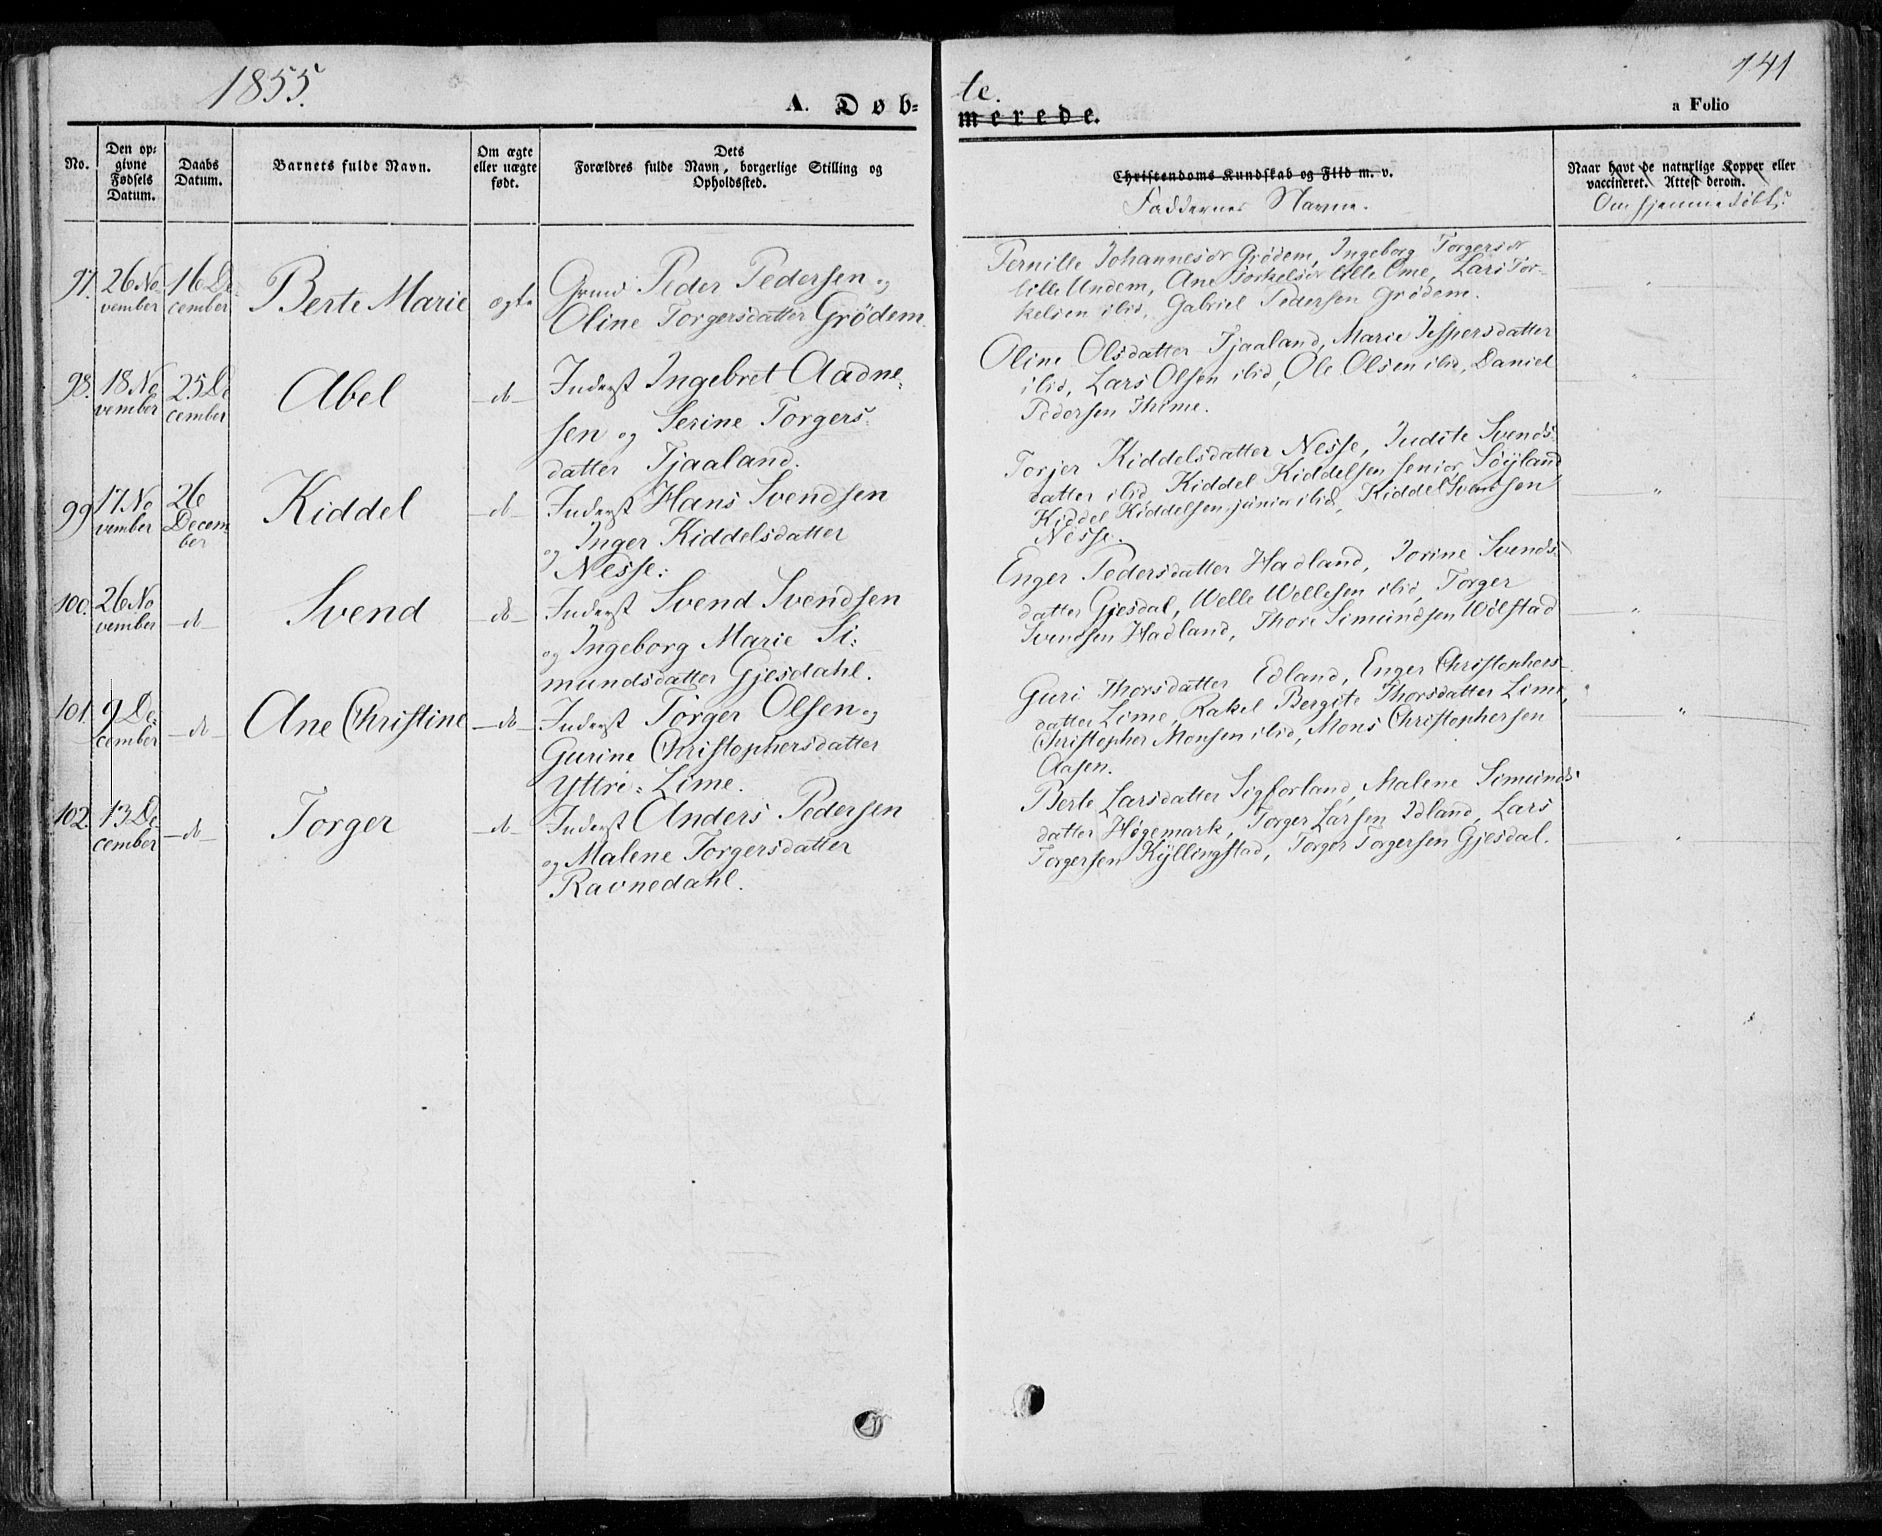 1855.
A. Døb-
te.
merede.
141
a Folio
No.
Den op-
givne
Fødsels
Datum.
Daabs
Datum.
Barnets fulde Navn.
Om ægte
eller uægte
født.
Dets
Forældres fulde Navn, borgerlige Stilling og
Opholdssted.
Christendoms Kundskab og Flid m. v.
Faddernes Navne.
Naar havt de naturlige Kopper eller
vaccineret. Attest derom.
Om hjemmedøbt.
97. 26 No
vember
16 De
cember
Berte Marie
ægte
Grmd Peder Pedersen og
Oline Torgersdatter Grödem.
Pernille Johannesdr Grødem, Ingeborg Torgersdr
lille Undem, Ane Torkelsdr lille Ome, Lars Tor-
kelsen ibid, Gabriel Pedersen Grødem.
98. 18 No
vember
25 De
cember
Abel
do
Inderst Ingebret Aadne-
sen og Serine Torgers-
datter Tjaaland.
Oline Olsdatter Tjaaland, Marie Jespersdatter
ibid, Lars Olsen ibid, Ole Olsen ibid, Daniel
Pedersen Thime.
99 17 No
vember
26
Decem-
ber
Kiddel
do
Inderst Hans Svendsen
og Inger Kiddelsdatter
Nesse.
Torjer Kiddelsdatter Nesse, Judite Svends-
datter ibid, Kiddel Kiddelsen senior Søyland
Kiddel Kiddelsen junior ibid, Kiddel Svendsen
Nesse.
100. 26 No
vember
do
Svend
do
Inderst Svend Svendsen
og Ingeborg Marie Si-
mundsdatter Gjesdahl.
Enger Pedersdatter Hadland, Jorine Svends-
datter Gjesdal, Welle Wellesen ibid, Torger
Svendsen Hadland, Thore Simundsen Wølstad
101. 9 De-
cember
do
Ane Christine
do
Inderst Torger Olsen og
Gurine Christophersdatter
Yttri-Lime.
Guri Thorsdatter Edland, Enger Christophers-
datter Lime, Rakel Bergite Thorsdatter Lime,
Christopher Monsen ibid, Mons Christophersen
Aasen.
102. 13 De-
cember
do
Torger
do
Inderst Anders Pedersen
og Malene Torgersdatter
Ravnedahl.
Berte Larsdatter Sigforland, Malene Simunds-
datter Høgemark, Torger Larsen Idland, Lars
Torgersen Kyllingstad, Torger Torgersen Gjesdal.